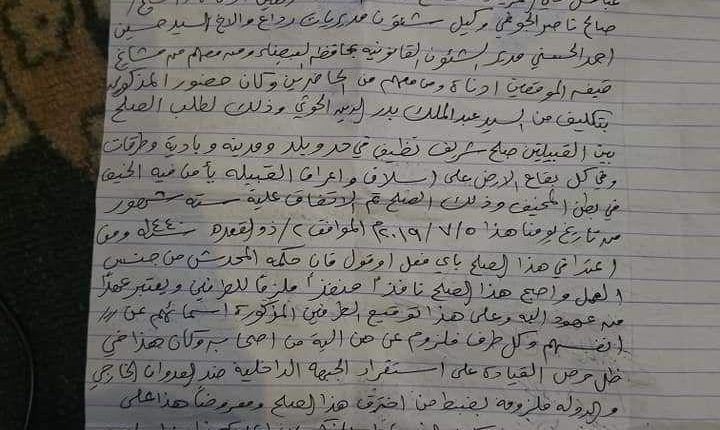 صالح ناصر الجوفي وكيل شئون مديريات رداع والاخ السيد حسين
احمد الحسني مدير الشئون القانونيه بمحافظه البيضاء ومن معهم من مشائخ
قيفه الموقعين ادناه ومن معهم من الحاضرين وكان حضور المذكورين
بتكليف من السيد عبدالملك بدر الدين الحوثي وذلك لطلب الصلح
بين القبيلتين صلح شريف نظيف في حد وبلد ومدينه وباديه وطرقات
وفي كل بقاع الارض على اسلاف واعراف القبيله يأمن فيه الخنيف
في بطن المخيف وذلك الصلح تم الاتفاق عليه سته شهور
من تاريخ يومنا هذا ٢٠١٩/٧/٥م الموافق ٢/ذو القعده ١٤٤٠هـ ومن
اعتدا في هذا الصلح باي فعل او قول فان حكمه المحدش من جنس
العمل واصبح هذا الصلح نافذاً منفذاً ملزماً للطرفين ويعتبر عهداً
منه عهود الله وعلى هذا توقيع الطرفين المذكورة اسمائهم عن
انفسهم وكل طرف ملزوم عن من اليه من اصحابه وكان هذا في
ظل حرص القيادة على استقرار الجبهه الداخلية ضد العدوان الخارجي
والدوله ملزومه بضبط من اخترق هذا الصلح ومفروضاً هذا على